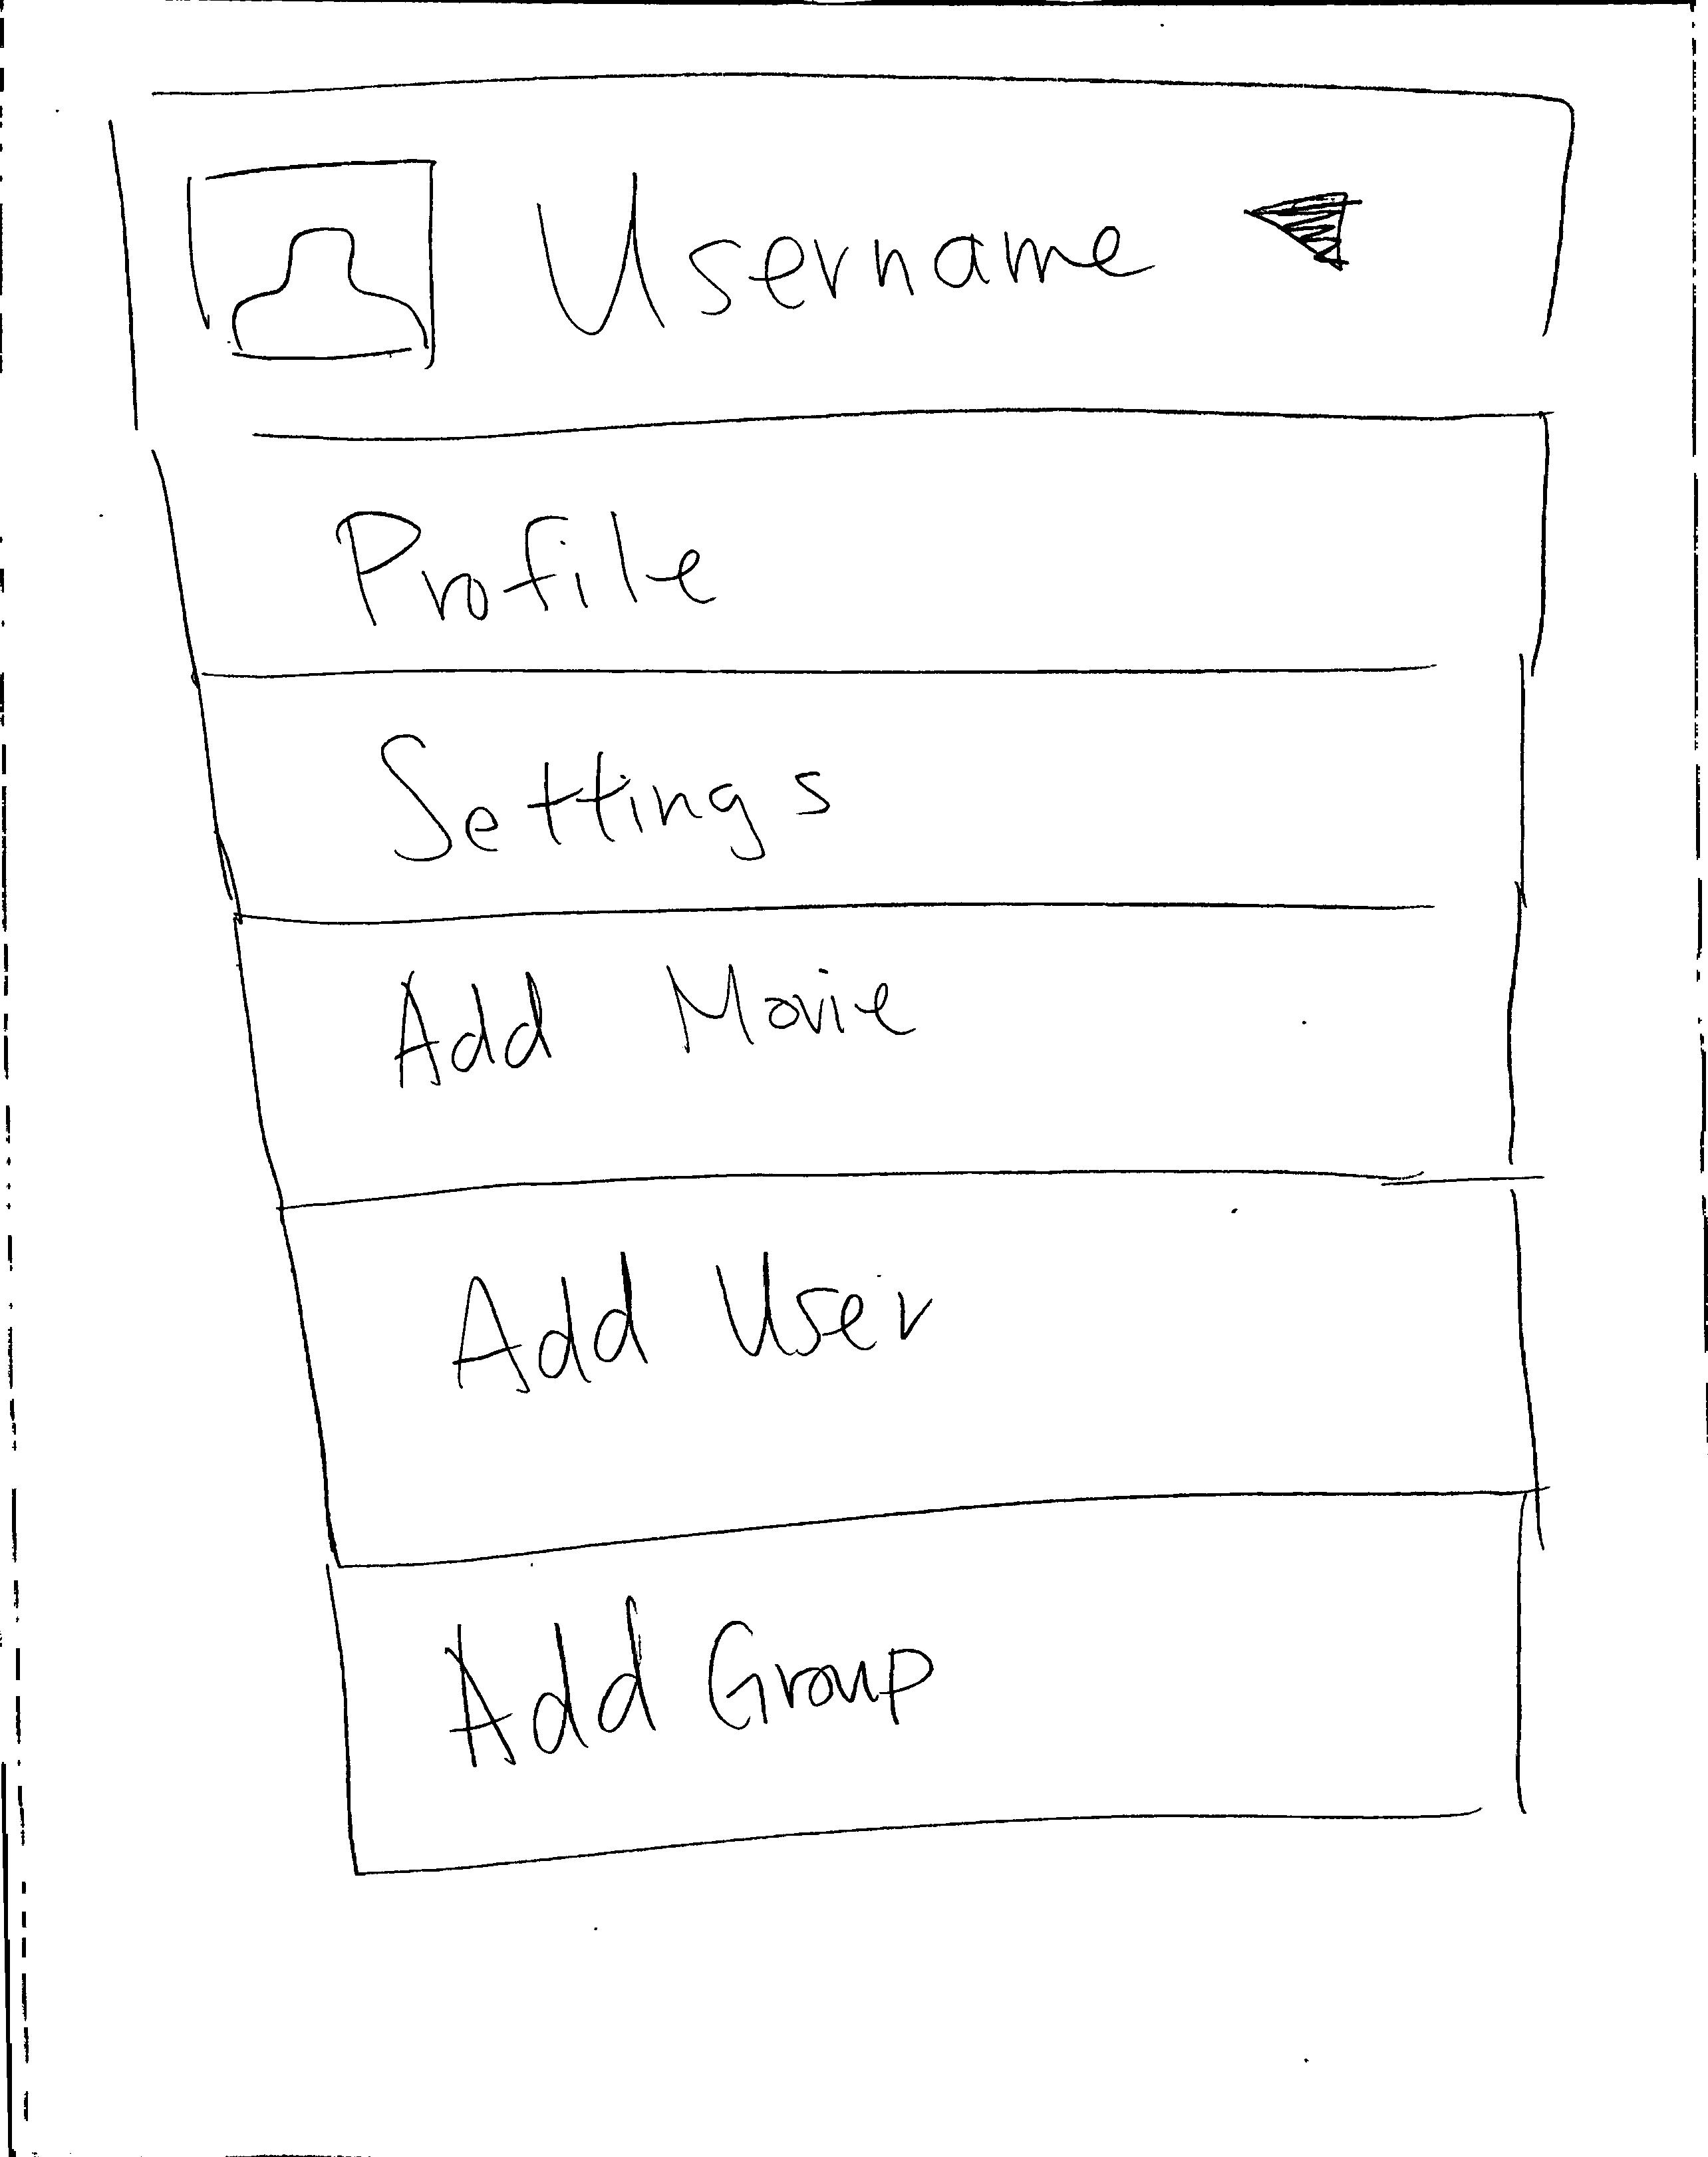 Username
Profile
Settings
Add Movie
Add User
Add Group